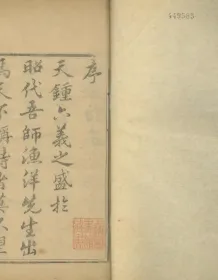 序
天鍾六義之盛於
昭代吾師漁洋先生出
焉天下稱詩者莫不望